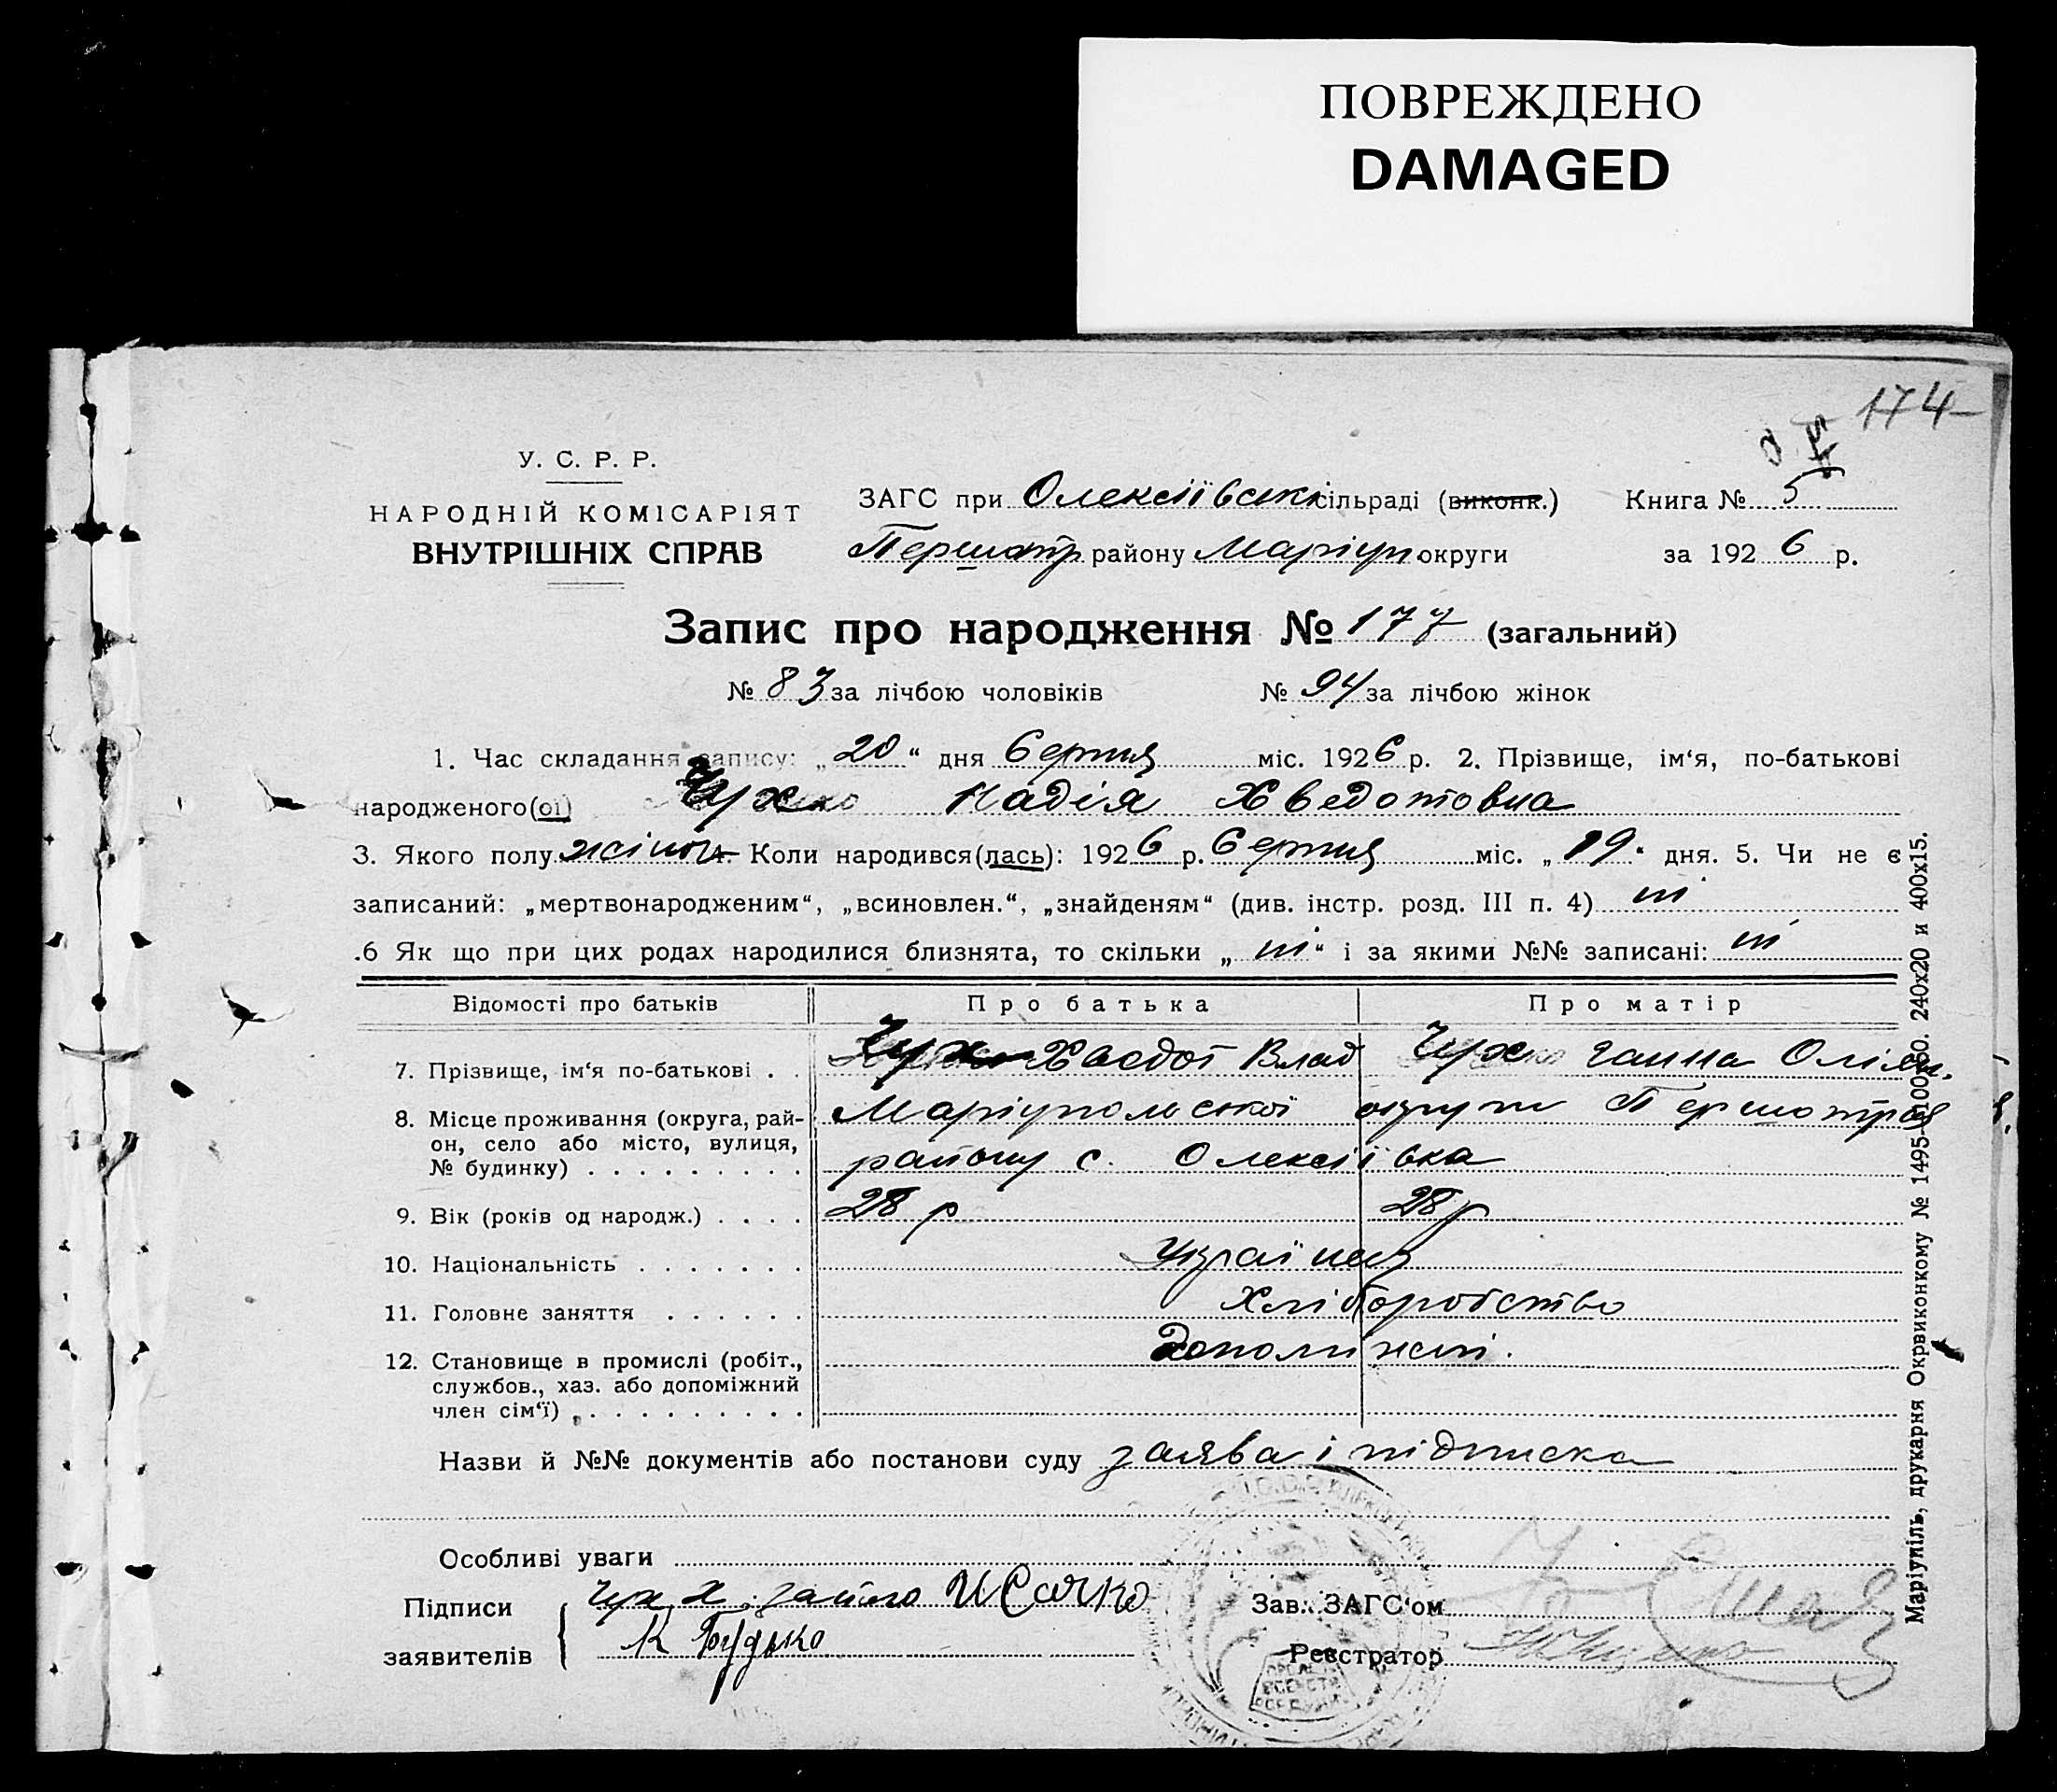 ПОВРЕЖДЕНО
DAMAGED
174
У. С. Р. Р.
НАРОДНІЙ КОМІСАРІЯТ
ВНУТРІШНІХ СПРАВ
ЗАГС при Олексіївські сільраді (виконк.) Книга № 5
Першотр району Маріуп округи за 1926 р.
Запис про народження № 177 (загальний)
№ 83 за лічбою чоловіків № 94 за лічбою жінок
1. Час складання запису: „20“ дня Серпня міс. 1926 р. 2. Прізвище, ім‘я, по-батькові
народженого(ої) Надія Хведотовна
3. Якого полу жіноч 4. Коли народився(лась): 1926 р. Серпня міс. „19“ дня. 5. Чи не є
записаний: „мертвонародженим“, „всиновлен.“, „знайденям“ (див. інстр. розд. III п. 4) ні
.6 Як що при цих родах народилися близнята, то скільки „ні“ і за якими №№ записані: ні
Відомості про батьків Про батька Про матір
7. Прізвище, ім‘я по-батькові . . Хведот Влад Ганна
8. Місце проживання (округа, рай- Маріупольської округи Першотрав
он, село або місто, вулиця, району с. Олексіївка
№ будинку) . . . . . . . . .
9. Вік (років од народж.) . . . . 28 р 28 р
10. Національність . . . . . . . Українці
11. Головне заняття . . . . . . Хліборобство
12. Становище в промислі (робіт.,
службов., хаз. або допоміжний
член сім‘ї) . . . . . . . . . .
Назви й №№ документів або постанови суду заява і підписка
Особливі уваги
Підписи
заявителів К Будько
Зав. ЗАГС‘ом
Реєстратор
Маріупіль, друкарня Окрвиконкому № 1495-100×50. 240х20 и 400х15.